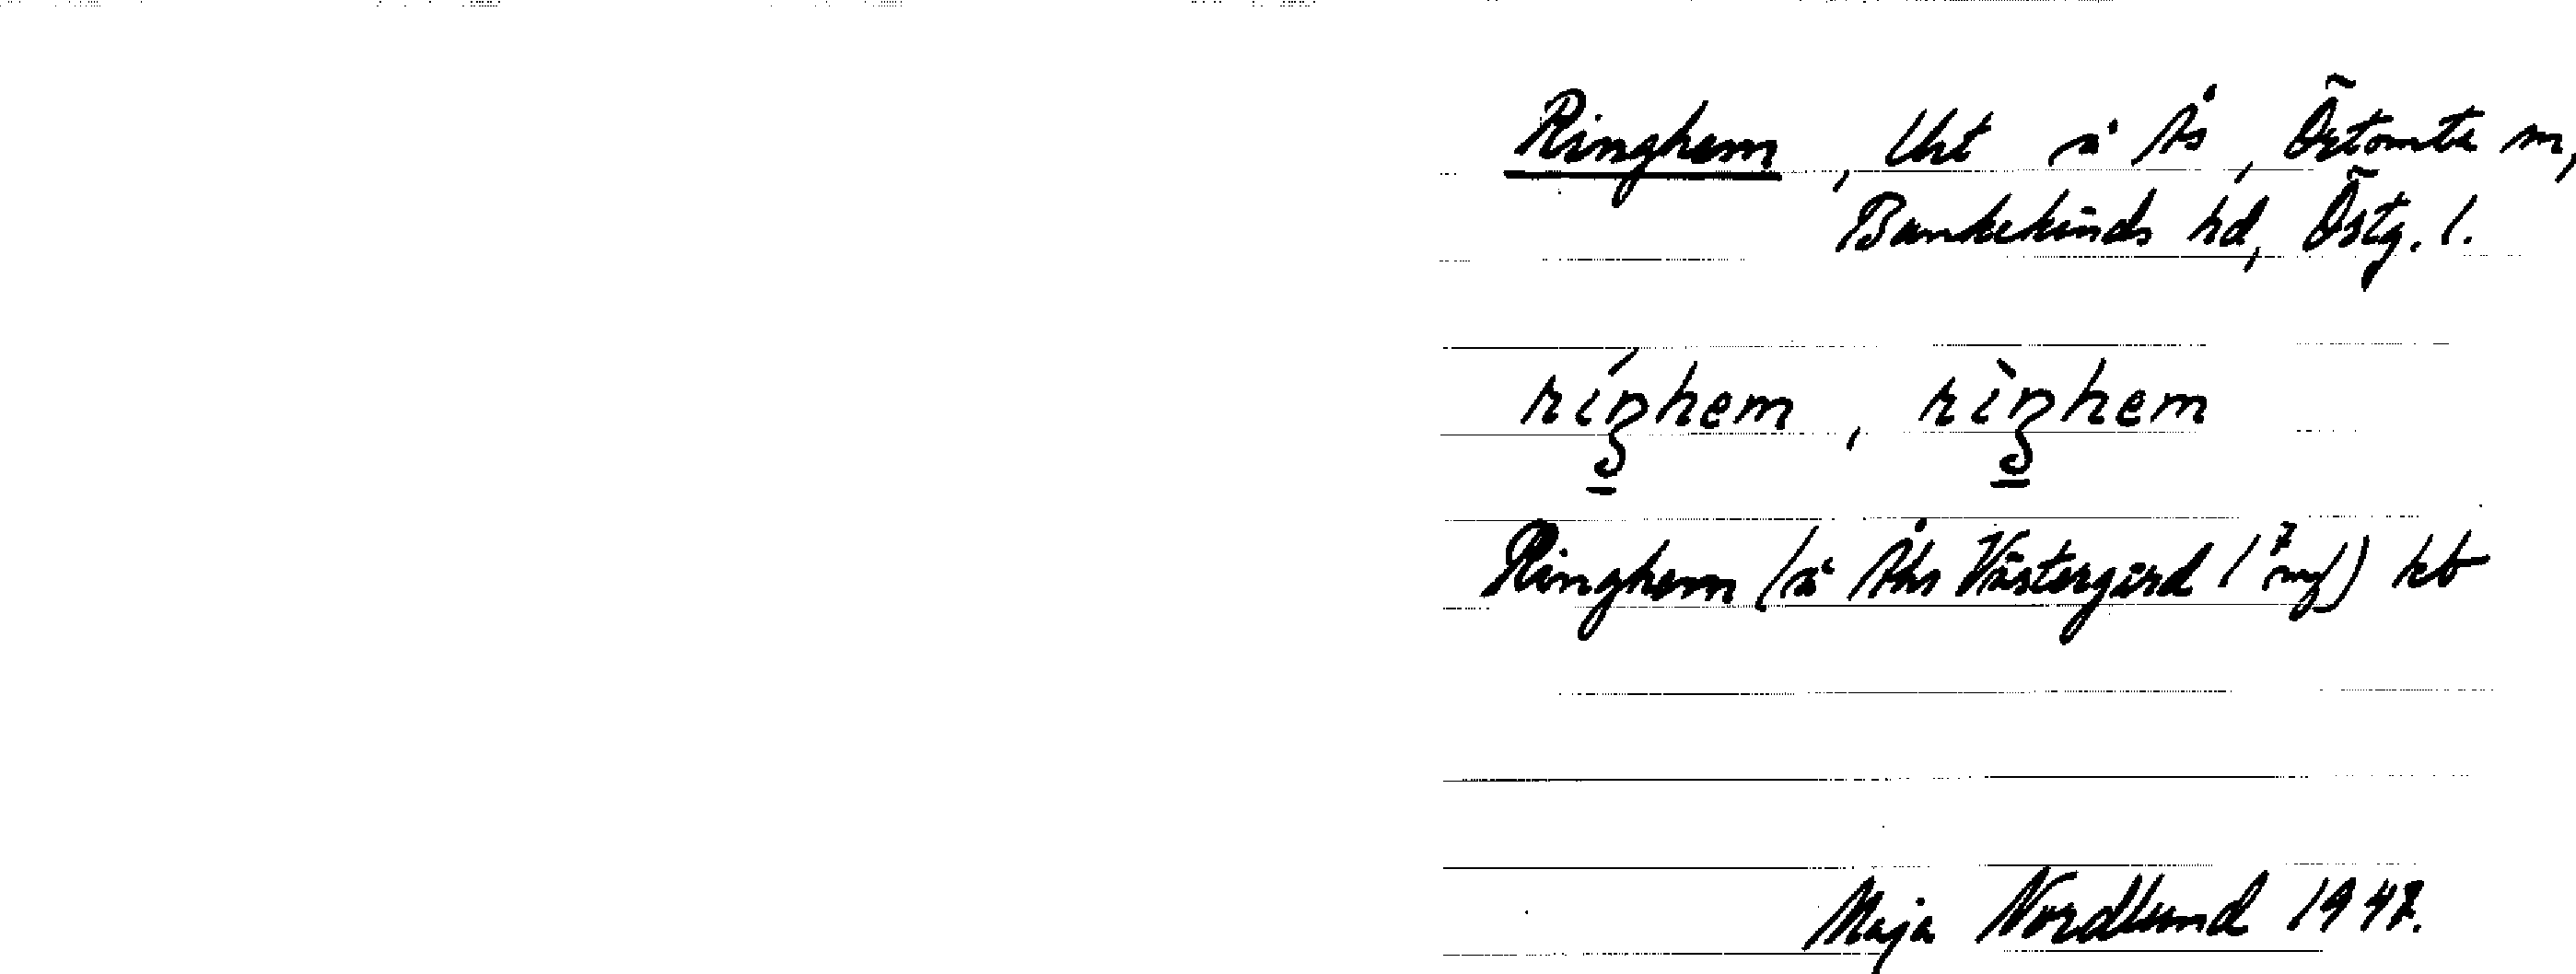 Ringhem, Uht å Ås, Örtomta sn,
Bankekinds hd, Östg. l.
ríŋhem, rìŋhem
Ringhem (å Åhs Västergård 1 7/ mf) kb
Maja Nordlund 1947.